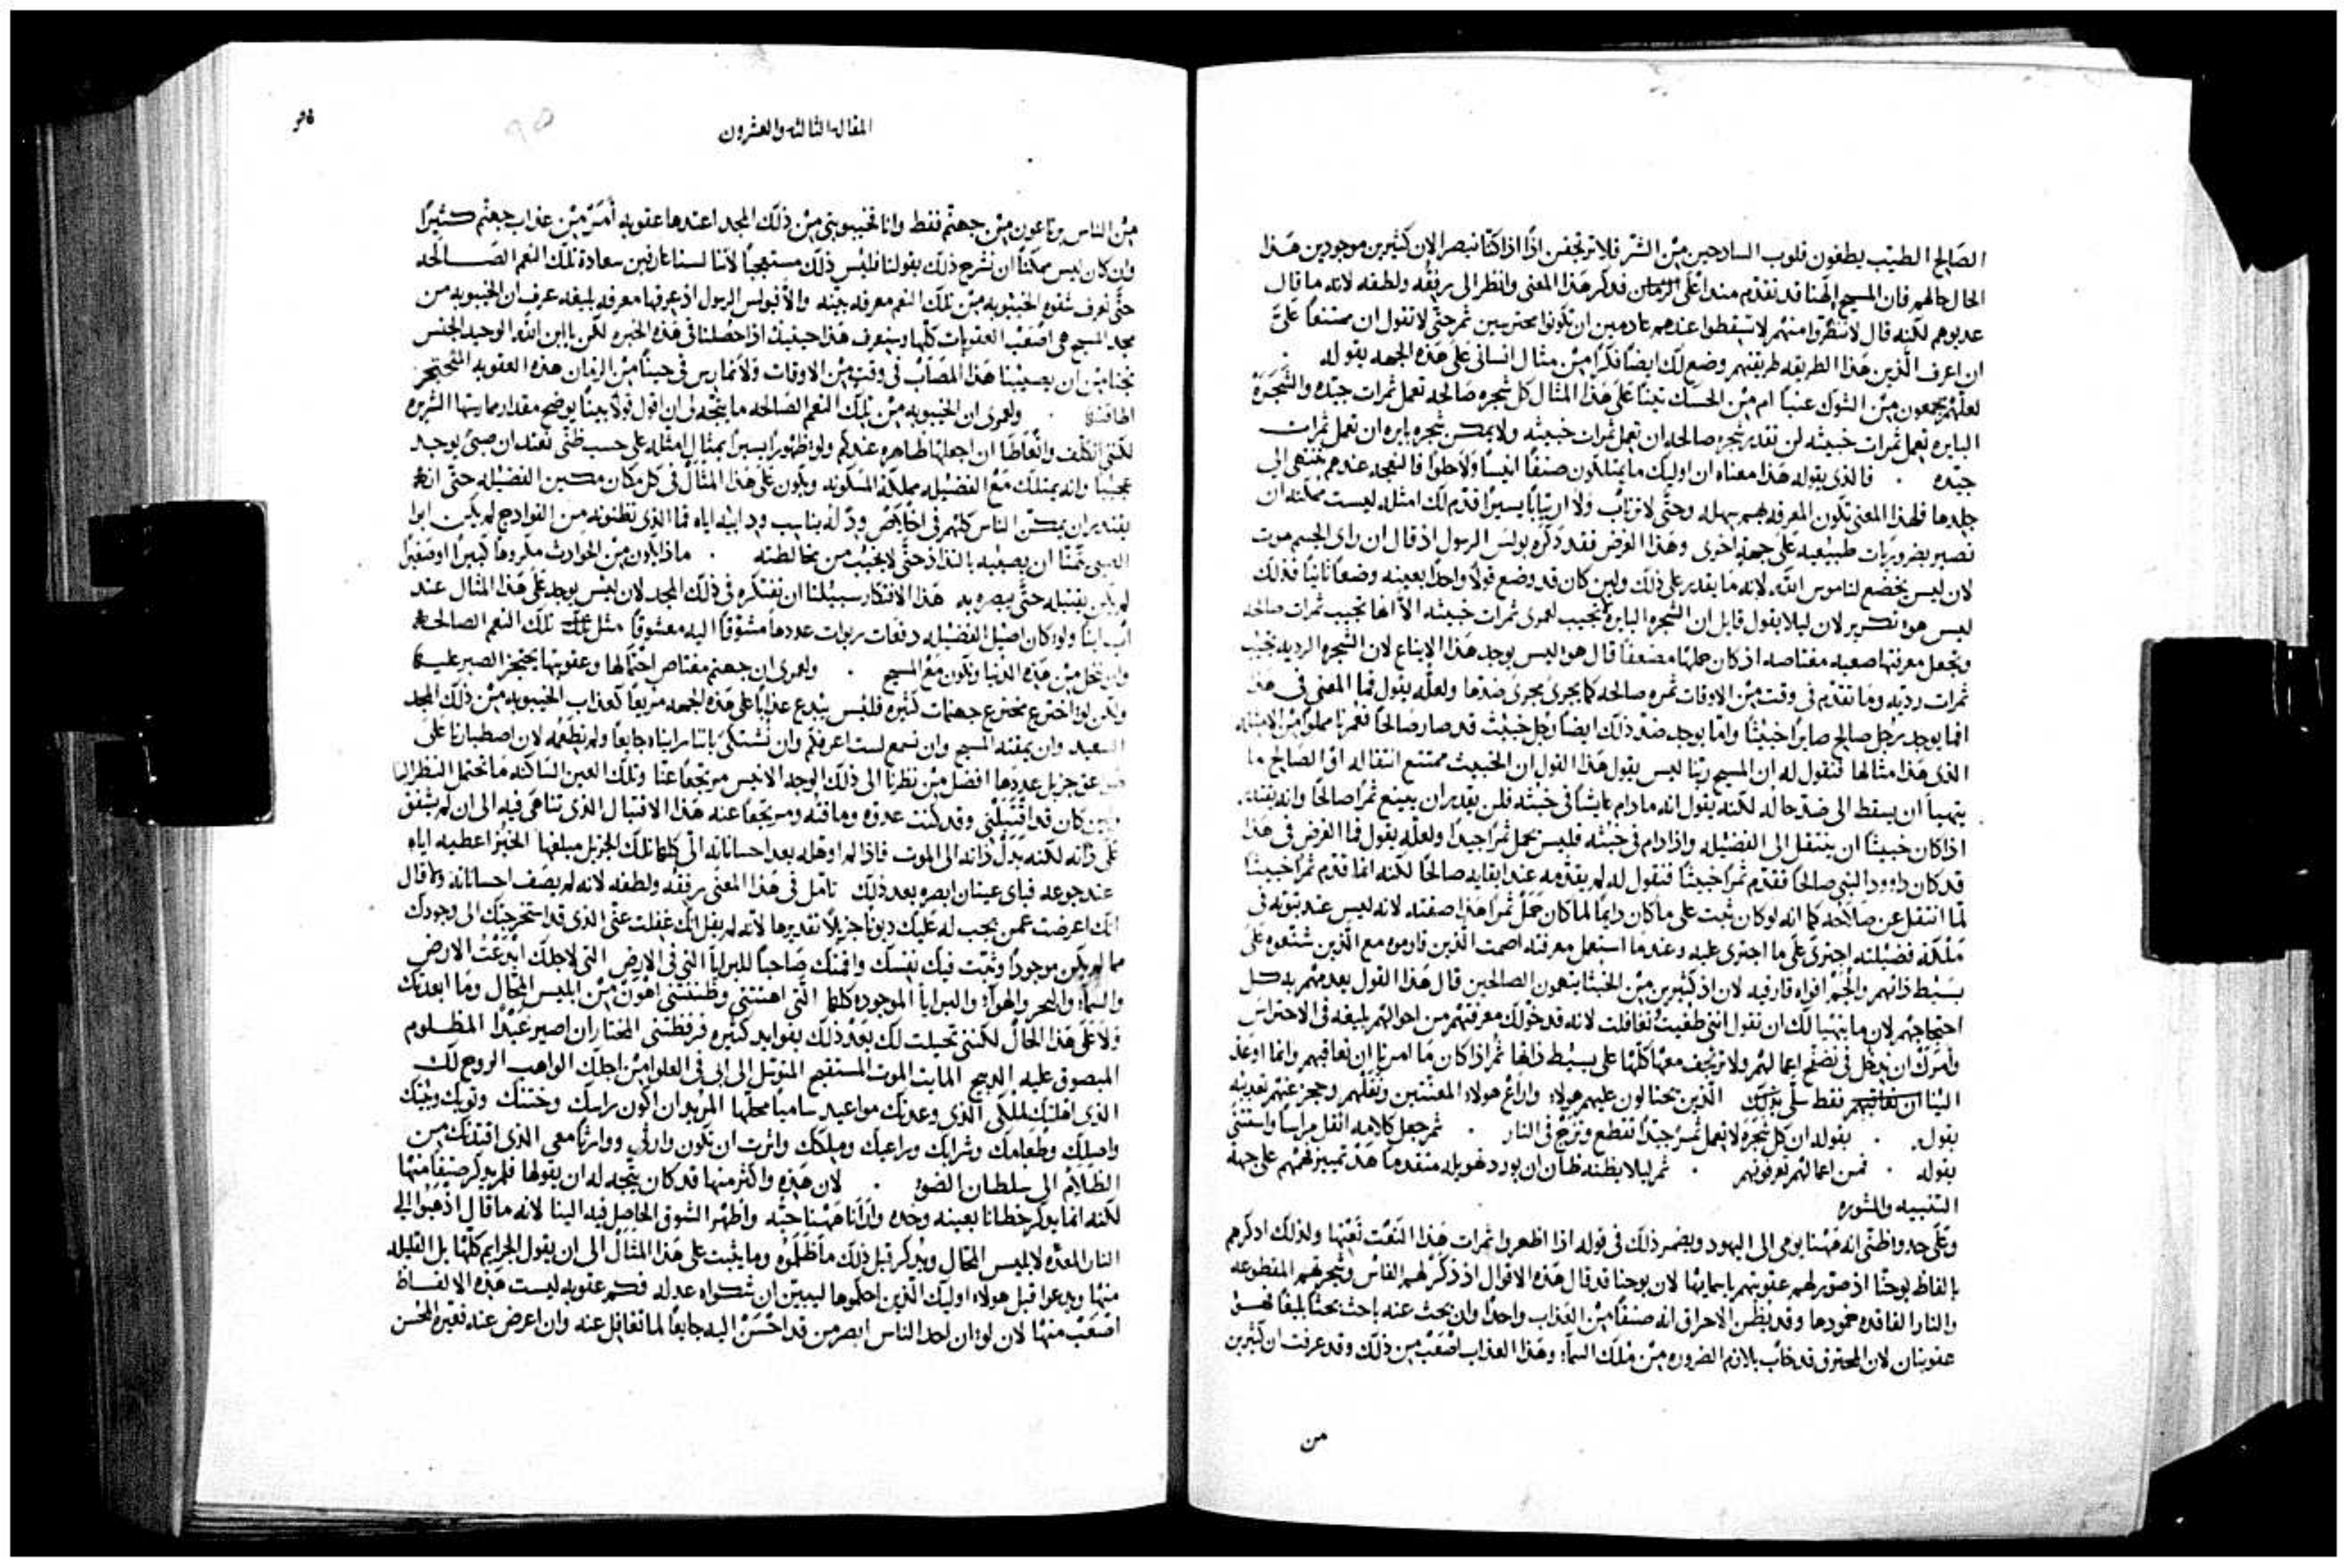 الصَالح الطيّب يطغون قلوب السادجين مِنْ الشّر فلا ترتجفن اذًا اذا كنّا نبصر الان كثيرين موجودين هَذا
الحال حالهم فان المسيح الهنا قد تقدّم منذ اعلى الزمان فدكر هَذا المعنى وانظر الى رفقه ولطفه لانه ما قال
عدبوهم لكنه قال لا تنظرّوا منهُم لا تسقطوا عندهم عادمين ان تكونوا محترسين ثم حتّى لا تقول ان ممتنعًا عليَّ
ان اعرف الّذين هَذا الطريقه طريقتهم وضع لك ايضًا فكرًا مِنْ مثال انسانى عَلى هَذه الجهه بقوله
لعلّهُم يجمعون مِنْ الشوك عنبًا ام مِنْ الحسَك تينًا عَلى هَذا المثال كل شجره صَالحه تعمل ثمرات جيّده والشَّجَرَه
البايره تعمل ثمرات خبيثه لن تقدر شجره صالحه ان تعمل ثمرات خبيثه ولا يمكن شجره بايره ان تعمل ثمرات
جيّده . فالذى يقوله هَذا معناه ان اوليك ما يمتلكون صنفًا انيسًا ولا حلوًا فالنعجه عندهم تنتهى الى
جلدها فلهذا المعنى تكون المعرفه بهم سهله وحتَّى لا ترتابْ ولا ارتيابًا يسيرًا قدّم لك امثله ليست ممكنه ان
تصير بضروريات طبيعيه عَلى جهةٍ اخرى وهَذا الغرض فقد دكره بولس الرسول اذ قال ان راى الجسم موت
لان ليس يخضع لناموس الله لانه ما يقدر على ذلك ولين كان قد وضع قولًا واحدًا بعينه وضعًا ثانيًا فذلك
ليس هو تكرير لان ليلا يقول قايل ان الشجره البايره تجيب لعمرى ثمرات خبيثه الّا انها تجيب ثمرات صالحه
وتجعل معرفتها صعبه معتاصه اذ كان حملها مضعفًا قال هو ليس يوجد هَذا الايناع لان الشجره الرديه تجيب
ثمرات رديه وما تقدّم فى وقت مِنْ الاوقات ثمره صالحه كما يجرى مجرى ضدّها ولعلّه يقول فما المعنى فى هَذا
افما يوجد رجل صالح صايرًا خبيثًا واما يوجد ضدّ ذلك ايضًا رجل خبيث قد صار صَالحًا فعُمرنا مملوًا مِنْ الامثله
الذى هَذا مثالها فنقول له ان المسيح ربّنا ليس يقول هَذا القول ان الخبيث ممتنع انتقاله او الصَالح ما
يتهيأ ان يسقط الى ضدّ حاله لكنه يقول انه ما دام عايشًا فى خبثه فلن يقدر ان يينع ثمرًا صالحًا وانه يقتدر
اذا كان خبيثًا ان ينتقل الى الفضيله واذا دام فى خبثه فليس يحمل ثمرًا جيدًا ولعلّه يقول فما الغرض فى هَذا
قد كان داوود النبى صالحًا فقدّم ثمرًا خبيثًا فنقول له لم يقدّمه عند ابقايه صالحًا لكنه انما قدّم ثمرًا خبيثًا
لمّا انتقل عن صَلاحه كما انه لو كان ثبت على ما كان دايمًا لما كان حَمَل ثمرًا هَذا صفته لانه ليس عند ثبوته فى
مَلكة فضيلته اجترى عَلى ما اجترى عليه وعندما استعمل معرفته اصمت الّذين قاوموه مع الّذين شنّعوه عَلى
بَسيْط ذاتهم والجم افواه قارفيه لان اذ كثيرين مِنْ الخبثا يتهمون الصالحين قال هَذا القول يعدمهم به كل
احتجاجهم لان ما يتهيا لك ان تقول اننى طغيتُ تغافلت لانه قد خوّلك معرفتهم من احوالهم بليغه فى الاحتراس
وامرَك ان تدخل فى تصفّح اعمالهم ولا تزحف معهَا كلّها على بسيط ذاتها ثم اذا كان ما امرنا ان نعاقبهم وانما اوعد
الينا ان نعاقبهم فقط سلّى بذلك الّذين يحتالون عليهم هولاء واراع هولاء المعنتين ونقلهم وحجز عنهُم تعديه
بقوله . بقوله ان كل شَجَرَه لا تعمل ثمرًا جيّدًا تقطع وتزج فى النار . ثم جعل كلامه اثقل مراسًا واستثنى
بقوله . فمن اعمالهم تعرفونهم . ثم ليلا يظنه ظان ان يورد تهويله متقدمًا هَذا تمييز فهمهم على جهة
التنبيه والمشوره
وعَلى حد واظنّى انه هَهنا يومى الى اليهود ويضمر ذلك فى قوله اذا اظهروا ثمرات هَذا النّعت نَعْتها ولذلك ادكرهم
بالفاظ يوحنّا اذ صوّر لهم عقوبتهم باسمايها لان يوحنا قد قال هَذه الاقوال اذ ذكّرهم الفاس وشجرتهم المقطوعه
والنار الفاقده خمودها وقد يظن الاحراق انه صنفًا مِنْ العَذاب واحدًا وان بحث عنه باحث بحثًا بليغًا فهو
عقوبتان لان المحترق قد خاب بلازم الضروره مِنْ ملك السماء وهَذا العذاب اصعَب مِن ذلك وقد عرفت ان كثيرين
من
المقاله الثالثه والعشرون
مِنْ الناس يرتاعون مِن جهنّم فقط وانا تخييبوبتى مِنْ ذلك المجد اعتدها عقوبه أَمَرّ مِنْ عذاب جهنّم كثيرًا
وان كان ليس ممكنًا ان نشرح ذلك بقولنا فليس ذلك مستعجبًا لانّنا لسنا عارفين سعادة تلك النعم الصَالحه
حتّى نعرف شقوه الخيبوبه مِنْ تلك النعم معرفه بيّنه والّا فبولس الرسول اذ عرفها معرفه بليغه عرف ان الخيبوبه من
مجد المسيح هى اصْعَبْ العقوبات كلّها وسنعرف هَذا حينيذ اذا حصلنا فى هَذه الخبره لكن يا ابن الله الوحيد الجنس
نجّنا مِن ان يصيبنا هَذا المصَاب فى وقت مِنْ الاوقات ولا نمارس فى حينًا مِنْ الزمان هذه العقوبه الممتنع
اطاقتها . ولعمرى ان الخيبوبه مِنْ تلك النعم الصَالحه ما يتّجه لى ان اقول قولًا بينًا يوضح مقدار ممارستها الشريره
لكننى اتكلّف واتعاطا ان اجعلها ظاهره عندكم ولو ظهورًا يسيرًا بمثال امثله على حسب ظنّى نعتد ان صبىً يوجد
عجيبًا وانه يمتلك مَع الفضيله مملكة المسكونه ويكون عَلى هَذا المثال فى كل مكان مكين الفضيله حتّى انه
يقتدر ان يمكّن الناس كلهم فى اخلاص ودّ له يناسب ود ابيه اياه فما الذى تظنونه مِن الفوادح لم يكن ابوا
الصبى متمنّا ان يصيبه بالتذاذ حتَّى لا يخيب من مخالطته . ماذا يكون مِنْ الحوادث مكروهًا كبيرًا او صغيرًا
لم يكن يقتبله حتَّى يبصره به هَذا الافتكار سبيلنا ان نفتكره فى ذلك المجد لان ليس يوجد عَلى هَذا المثال عند
اب ابنًا ولو كان اصيل الفضيله دفعَات ربوات عددها مشوّقًا اليه معشوقًا مثل تلك النعم الصالحه
وان نحل مِنْ هَذه الدنيا ونكون مَع المسيح . ولعمرى ان جهنم معتاص احتمالها وعقوبتها يحتجز الصبر عليها
ولكن لو اخترع مخترع جهنمات كثيره فليس يبدع عذابًا عَلى هَذه الجهه مريعًا كعذاب الخيبوبه مِنْ ذلك المجد
السعيد وان يمقته المسيح وان نسمع لست اعرفكم وان نُشتكى باننا رايناه جايعًا ولم نطعمه لان اصطبارنا عَلى
صواعق جزيل عددها افضل مِنْ نظرنا الى ذلك الوجه الانيس مرتجعًا عنا وتلك العين السَاكنه ما تحتمل النظر الينا
ولين كان قد اقتبلنى وقد كنت عدوّه وماقته ومرتجعًا عنه هَذا الاقتبال الذى تناهى فيه الى ان لم يشفق
على ذاته لكنه بَذَل ذاته الى الموت فاذا لم اوهله بعد احساناته الى كلها تلك الجزيل مبلغها الخبز اعطيه اياه
عند جوعه فباى عينان ابصره بعد ذلك تامّل فى هَذا المعنى رفقه ولطفه لانه لم يصف احساناته ولا قال
انك اعرضت عمن يجب له عَليك ديونًا جزيلًا تقديرها لانه لم يقل انك غفلت عنّى الذى قد استخرجتك الى وجودك
مما لم يكن موجودًا ونفثت فيك نفسك واقمتك صَاحبًا للبرايا التى فى الارض التى لاجلك ابدَعْت الارض
والسماء والبحر والهواء والبرايا الموجوده كلها التى اهنتنى وظننتنى اهون مِنْ ابليس المحال وما ابعدتك
ولا على هَذا الحال لكننى تحيلت لك بعد ذلك بفوايد كثيره فرفضتنى المختار ان اصير عَبْدًا المظلوم
المبصوق عليه الدبيح المايت الموت المستقبح المتوسّل الى ابى فى العلو مِنْ اجلك الواهب الروح لك
الذى اهلتك لملكى الذى وعدتك مواعيد ساميًا محلّها المريد ان اكون راسك وختنك وثوبك وبيتك
واصلك وطعامك وشرابك وراعيك وملكك واثرت ان تكون وارثى ووارثًا معى الذى اقتدتك مِن
الظلام الى سلطان الضوء . لان هَذه واكثر منها قد كان يتّجه له ان يقولها فلم يدكر صنفًا منهَا
لكنه انما يدكر خطانا بعينه وحده وارَانا هَهنا حبّه واظهر الشوق الحاصل فيه الينا لانه ما قال اذهبوا الى
النار المعدّه لابليس المحال ويدكر قبل ذلك ما ظلموه وما يثبت على هَذا المثال الى ان يقول الجرايم كلّها بل القليله
منها ويدعوا قبل هولاء اوليك الّذين احكموها ليبيّن ان شكواه عدله فكم عقوبه ليست هَذه الالفاظ
اصْعَبْ منها لان لو ان احد الناس ابصر من قد احْسَنَ اليه جايعًا لما تغافل عنه وان اعرض عنه فعيّره المحسن